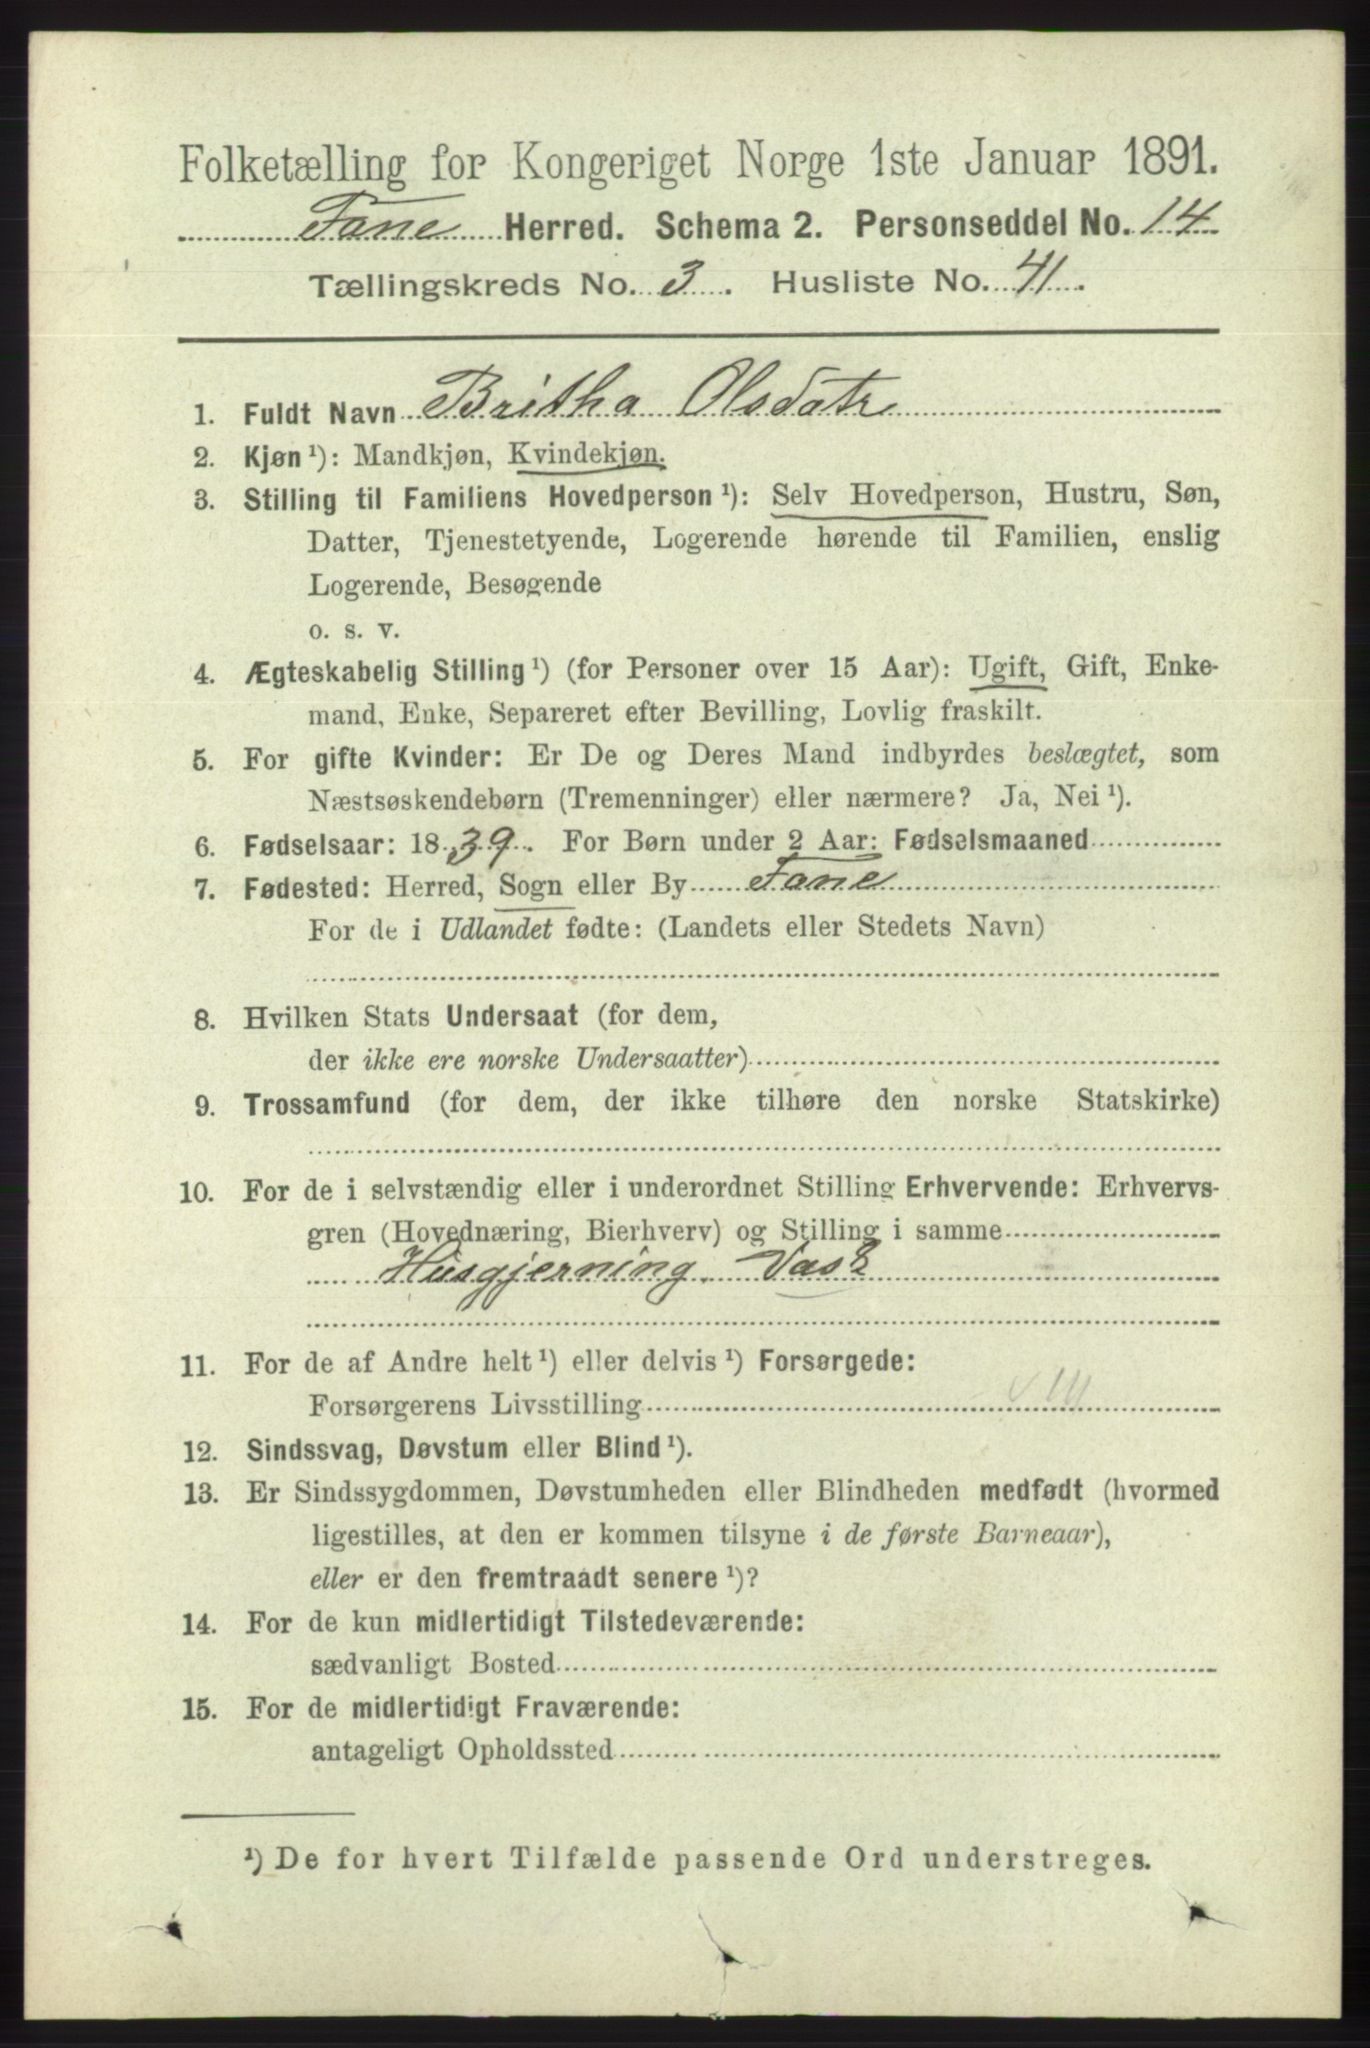 Folketælling for Kongeriget Norge 1ste Januar 1891.
Fane Herred. Schema 2. Personseddel No. 14
Tællingskreds No. 3. Husliste No. 41.
1. Fuldt Navn Britha Olsdatr
2. Kjøn ¹): Mandkjøn, Kvindekjøn.
3. Stilling til Familiens Hovedperson ¹): Selv Hovedperson, Hustru, Søn,
Datter, Tjenestetyende, Logerende hørende til Familien, enslig
Logerende, Besøgende
o. s. v.
4. Ægteskabelig Stilling ¹) (for Personer over 15 Aar): Ugift, Gift, Enke-
mand, Enke, Separeret efter Bevilling, Lovlig fraskilt.
5. For gifte Kvinder: Er De og Deres Mand indbyrdes beslægtet, som
Næstsøskendebørn (Tremenninger) eller nærmere? Ja, Nei ¹).
6. Fødselsaar: 1839. For Børn under 2 Aar: Fødselsmaaned
7. Fødested: Herred, Sogn eller By Fane
For de i Udlandet fødte: (Landets eller Stedets Navn)
8. Hvilken Stats Undersaat (for dem,
der ikke ere norske Undersaatter)
9. Trossamfund (for dem, der ikke tilhøre den norske Statskirke)
10. For de i selvstændig eller i underordnet Stilling Erhvervende: Erhvervs-
gren (Hovednæring, Bierhverv) og Stilling i samme
Husgjerning, Vask
11. For de af Andre helt ¹) eller delvis ¹) Forsørgede:
Forsørgerens Livsstilling
12. Sindssvag, Døvstum eller Blind ¹).
13. Er Sindssygdommen, Døvstumheden eller Blindheden medfødt (hvormed
ligestilles, at den er kommen tilsyne i de første Barneaar),
eller er den fremtraadt senere ¹)?
14. For de kun midlertidigt Tilstedeværende:
sædvanligt Bosted
15. For de midlertidigt Fraværende:
antageligt Opholdssted
¹) De for hvert Tilfælde passende Ord understreges.